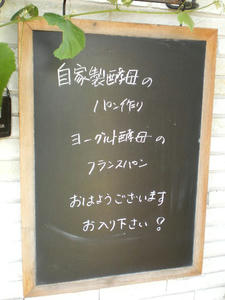 自家製酵母の
パン作り
ヨーグルト酵母の
フランスパン
おはようございます
お入り下さい!